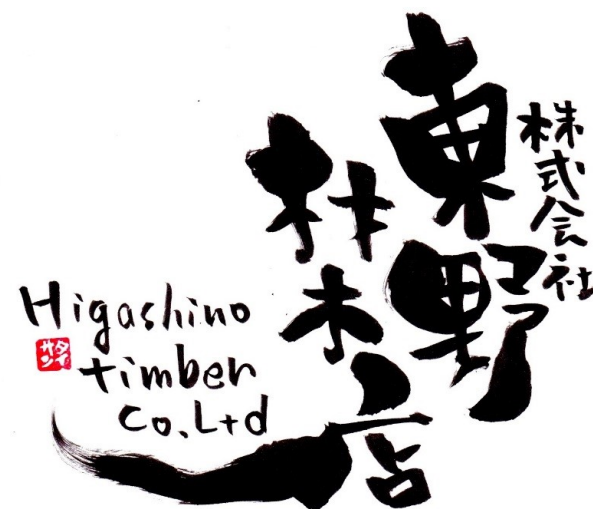 株式会社
東野
材木店
Higashino
timber
Co.Ltd
タイ
サン